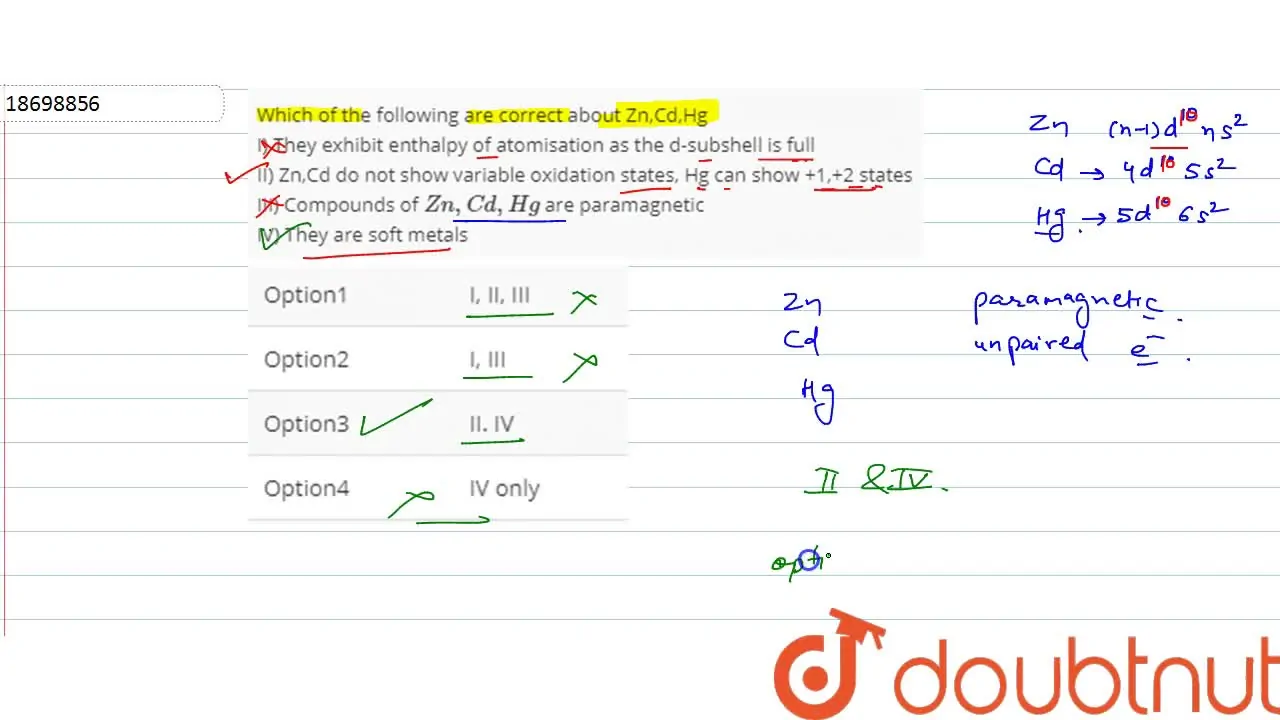 18698856
Which of the following are correct about Zn,Cd,Hg
I) They exhibit enthalpy of atomisation as the d-subshell is full
II) Zn,Cd do not show variable oxidation states, Hg can show +1,+2 states
III) Compounds of Zn, Cd, Hg are paramagnetic
IV) They are soft metals
Option1 I, II, III
Option2 I, III
Option3 II. IV
Option4 IV only
Zn (n-1)d¹⁰ ns²
Cd → 4d¹⁰ 5s²
Hg → 5d¹⁰ 6s²
Zn paramagnetic.
Cd unpaired e⁻.
Hg
II & IV.
opti
doubtnut